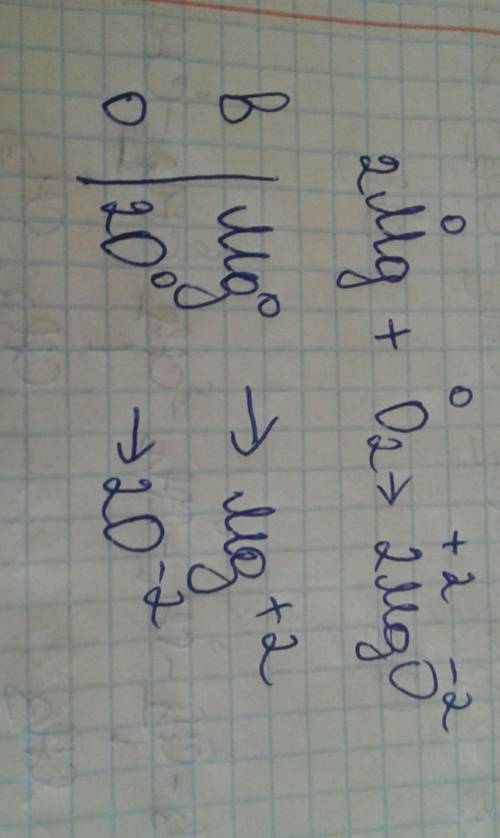 2Mg⁰ + O₂⁰ → 2Mg⁺²O⁻²
в | Mg⁰ → Mg⁺²
о | 2O⁰ → 2O⁻²